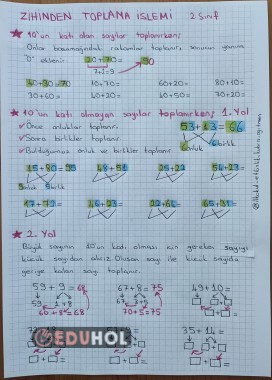 ZİHİNDEN TOPLAMA İŞLEMİ 2.Sınıf
★ 10'un katı olan sayılar toplanırken;
Onlar basamağındaki rakamlar toplanır, sonucun yanına
"0" eklenir. 20+70= 90
7+2=9
40+30=70 10+70= 60+20= 80+10=
30+60= 20+60= 40+50= 70+20=
★ 10'un katı olmayan sayılar toplanırken; 1. Yol
✓ Önce onluklar toplanır. 53+13=66
✓ Sonra birlikler toplanır.
✓ Bulduğumuz onluk ve birlikler toplanır. 6onluk 6birlik
15+80=95 48+51 25+22 54+23=
9onluk 5birlik
17+72= 22+64= 51+23=
★ 2. Yol
Büyük sayının 10'un katı olması için gereken sayıyı
küçük sayıdan alırız. Oluşan sayı ile küçük sayıdan
geriye kalan sayı toplanır.
59+9=68 67+8=75 49+10=
59 1+8 67 3+5
60+8=68 70+5=75
EDUHOL
35+14=